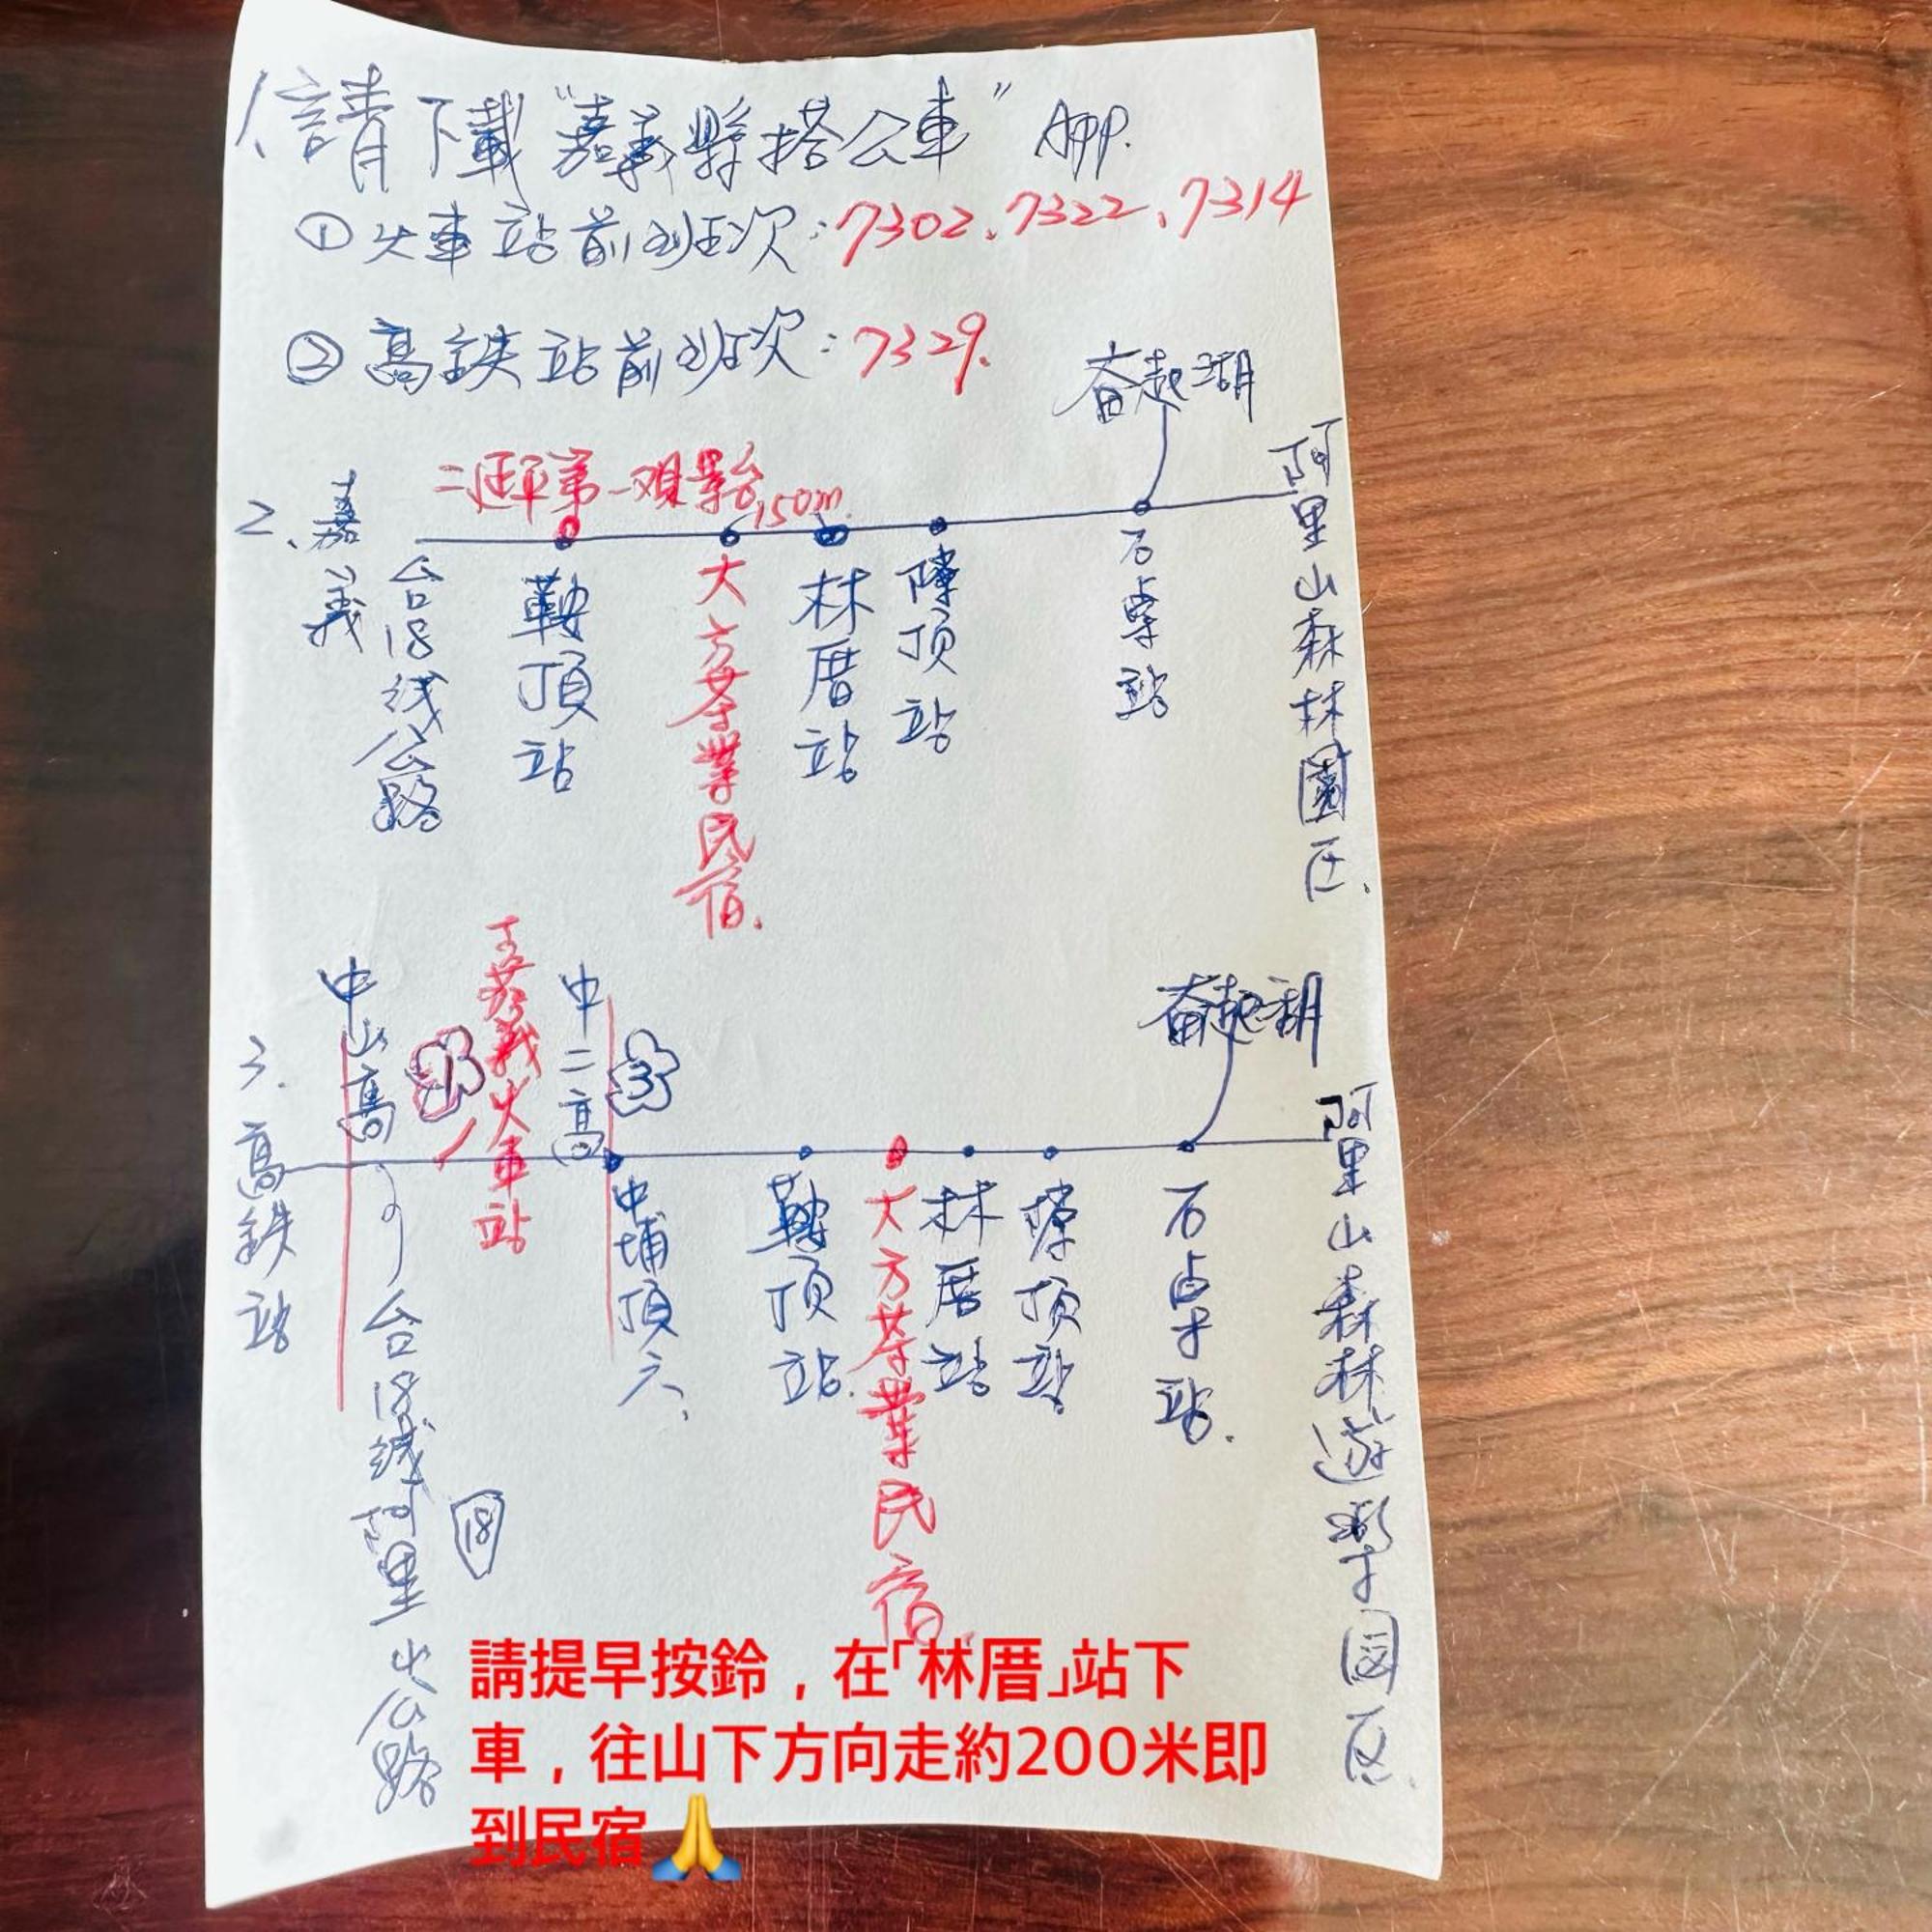 1、請下載“嘉義縣搭公車”APP.
①火車站前班次：7302、7322、7314
②高鉄站前班次：7329.
奋起湖
二延平第一观景台
150m
2、嘉義
台18线公路
鞍頂站
大方茶業民宿.
林厝站
顶站
石桌站
阿里山森林園区.
3.高鉄站
中山高
1
嘉義火車站
中二高
3
奋起湖
台18线阿里山公路
18
中埔頂六、
鞍顶站.
大方茶業民宿.
林厝站
顶站.
石卓站.
阿里山森林遊樂园区.
請提早按鈴，在「林厝」站下
車，往山下方向走約200米即
到民宿🙏